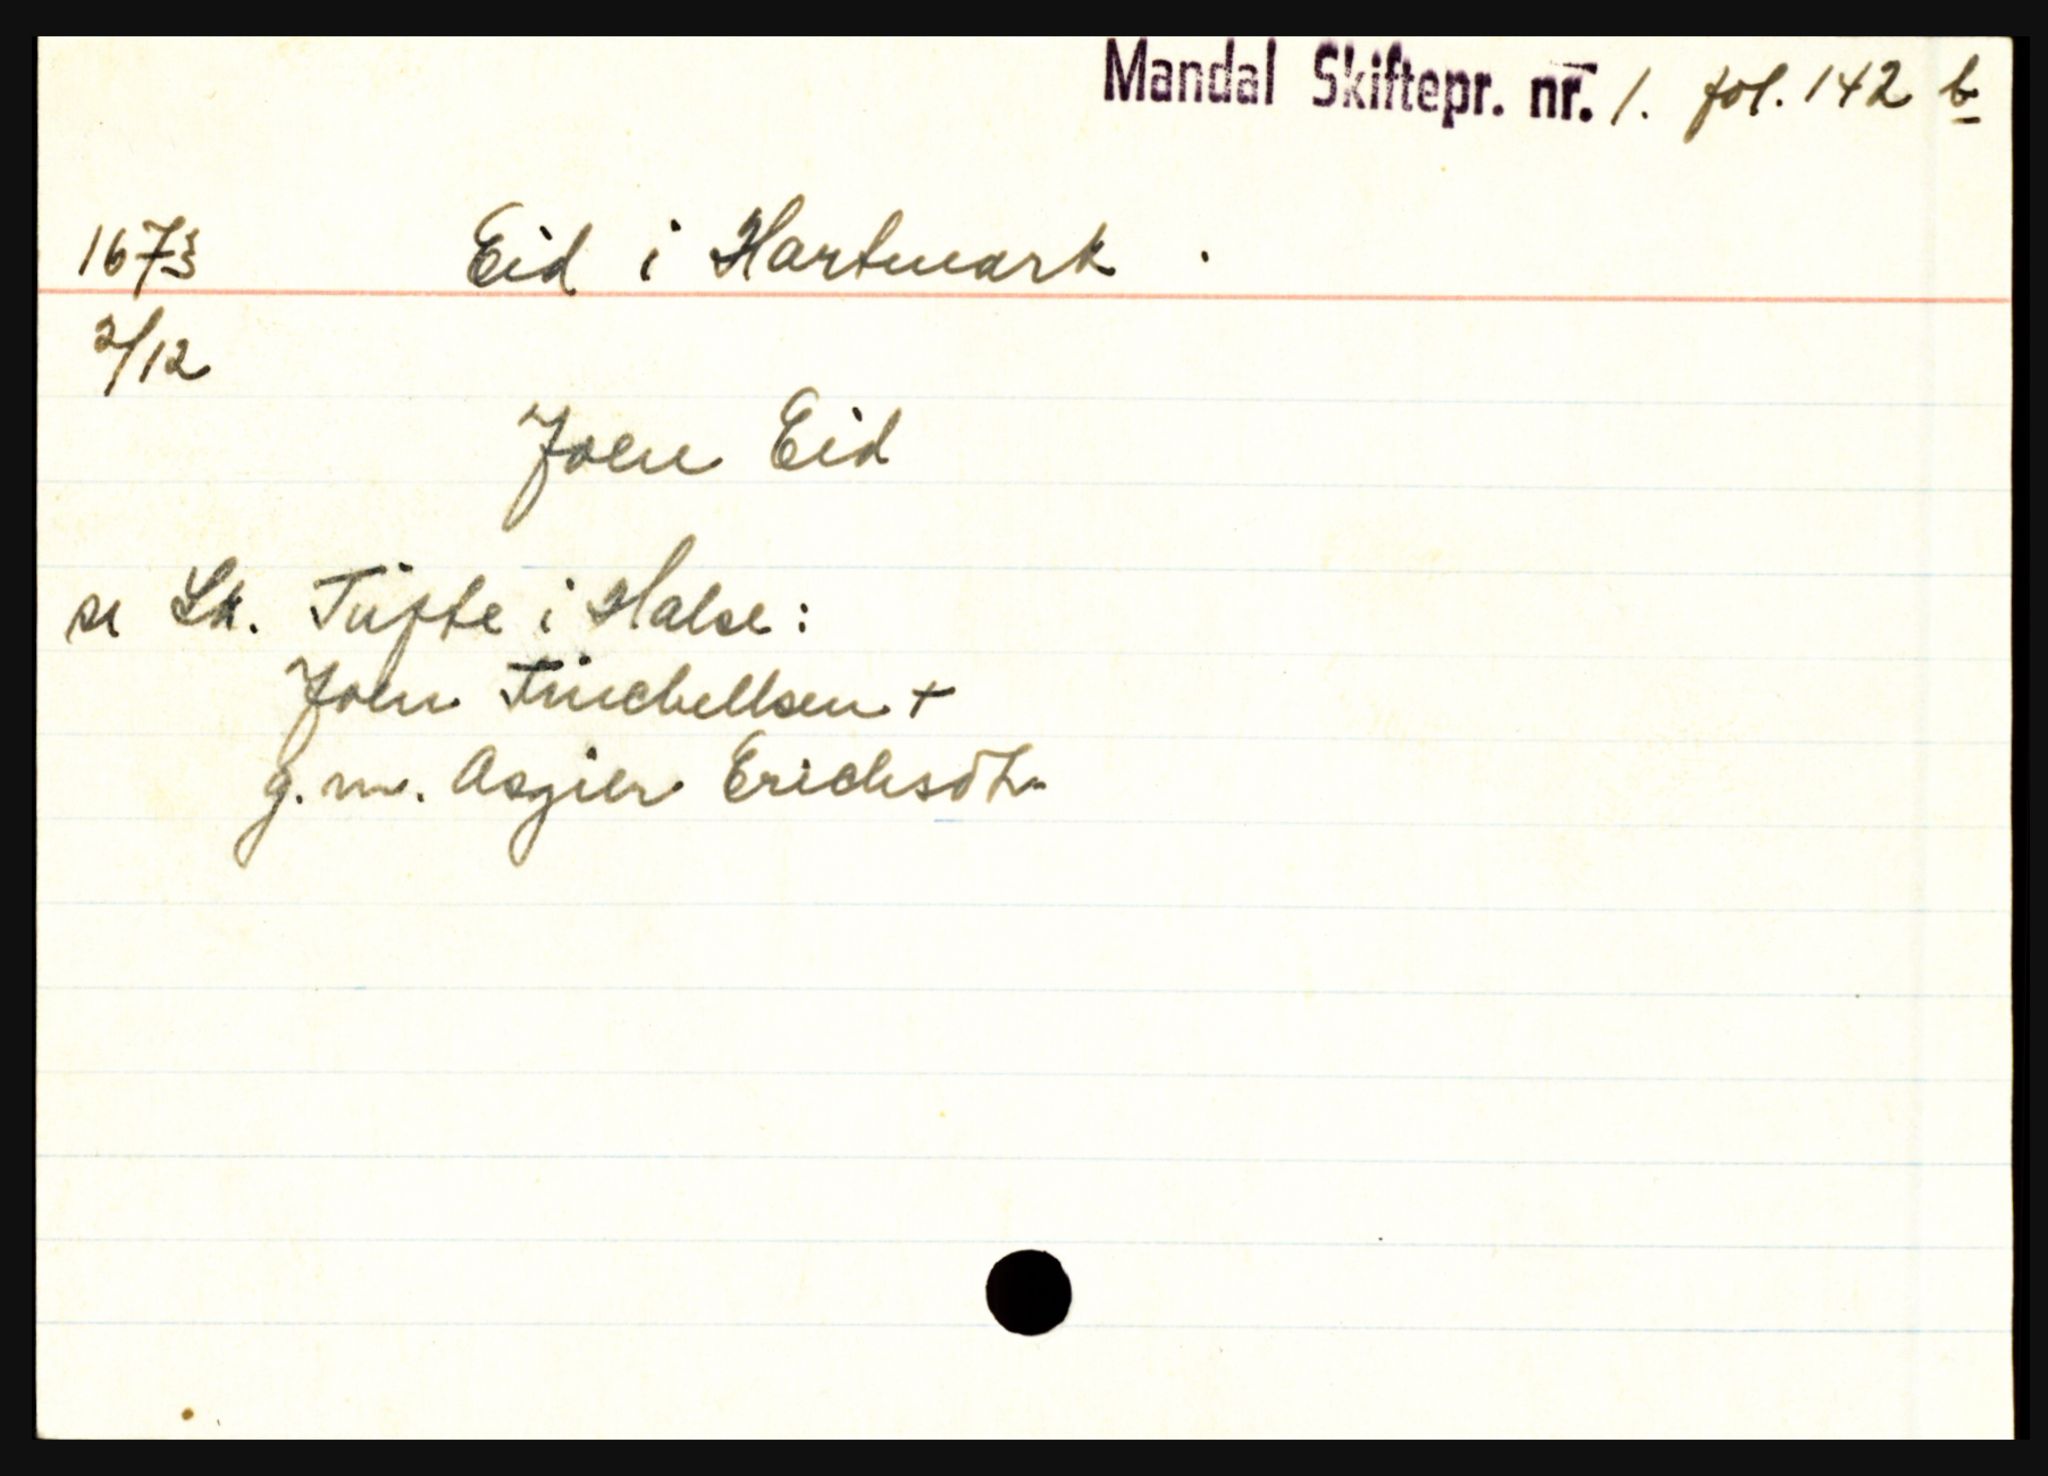 Mandal Skiftepr. nr. 1. fol. 142 b
1673 Eid i Hartmark.
2/12
Joen Eid
se Lk. Tufte i Halse:
Joen Truchellsen +
g. m. Asgier Erichsdh.